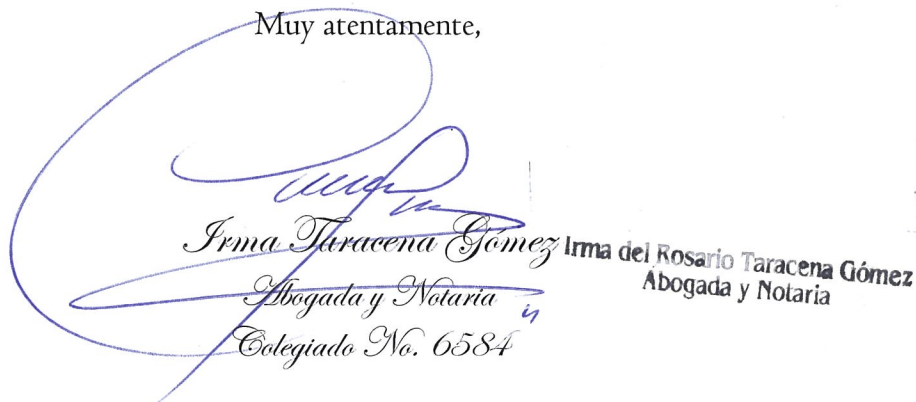 Muy atentamente,
Irma Taracena Gómez
Abogada y Notaria
Colegiado No. 6584
Irma del Rosario Taracena Gómez
Abogada y Notaria